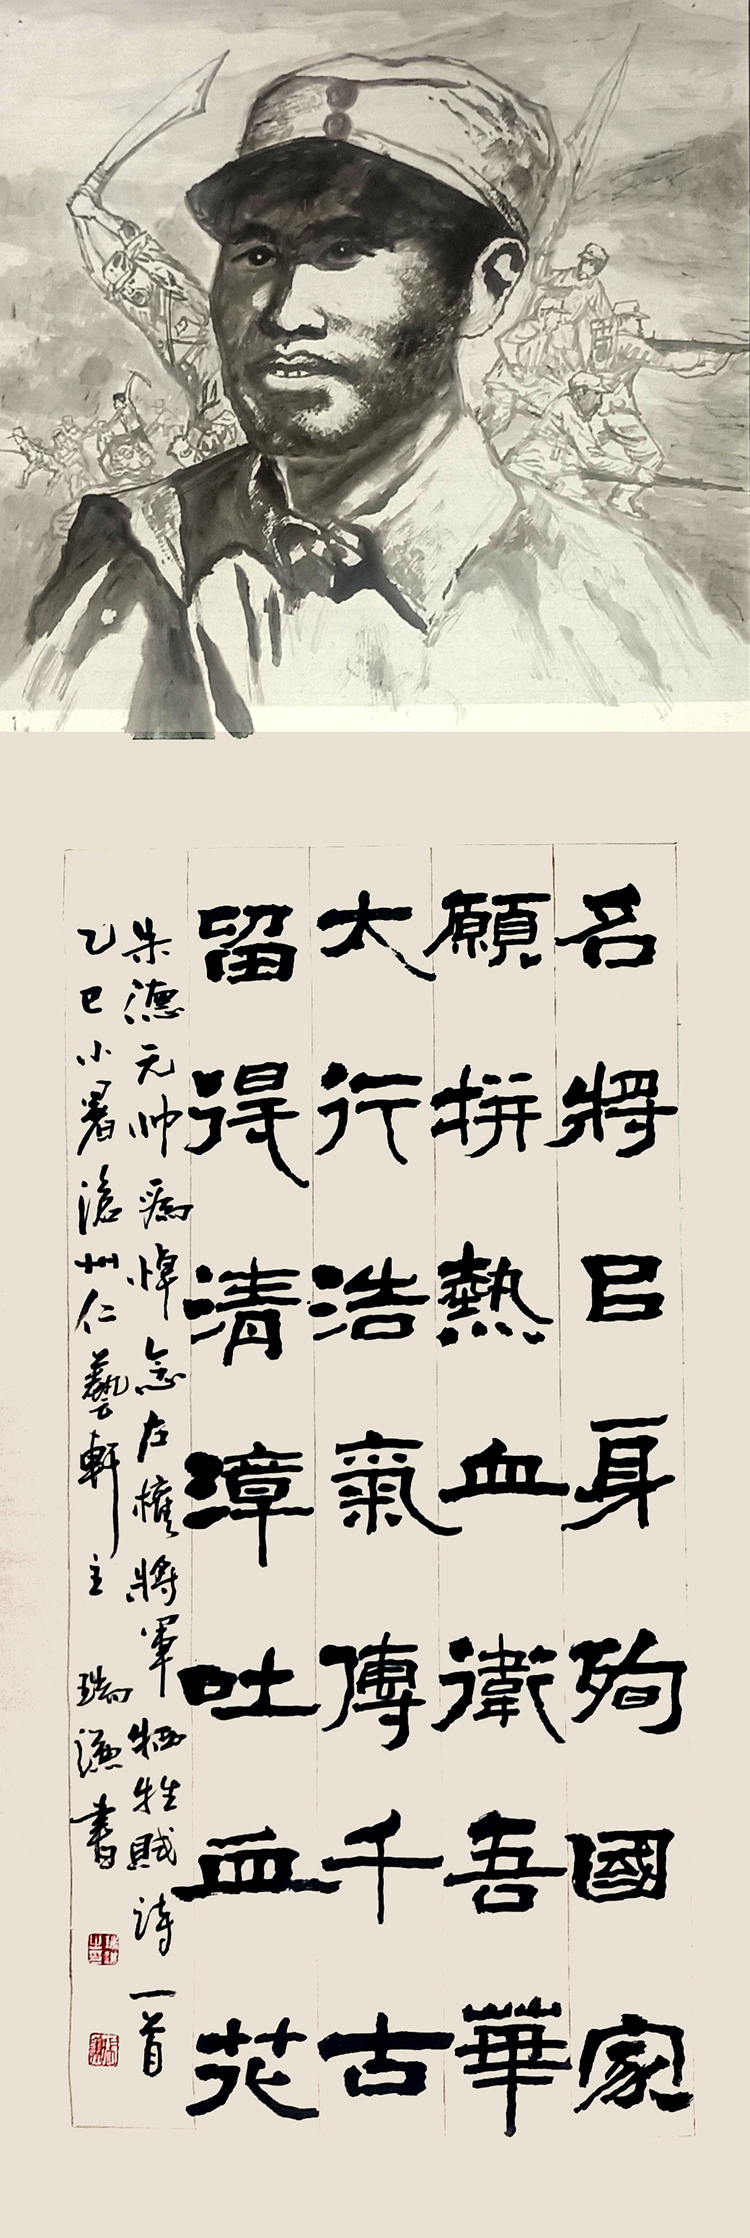 名將㠯身殉國家
願拼熱血衛吾華
太行浩氣傳千古
留得清漳吐血花
朱德元帅爲悼念左權將軍牺牲賦詩一首
乙巳小暑滄州仁藝軒主 瑞謙書